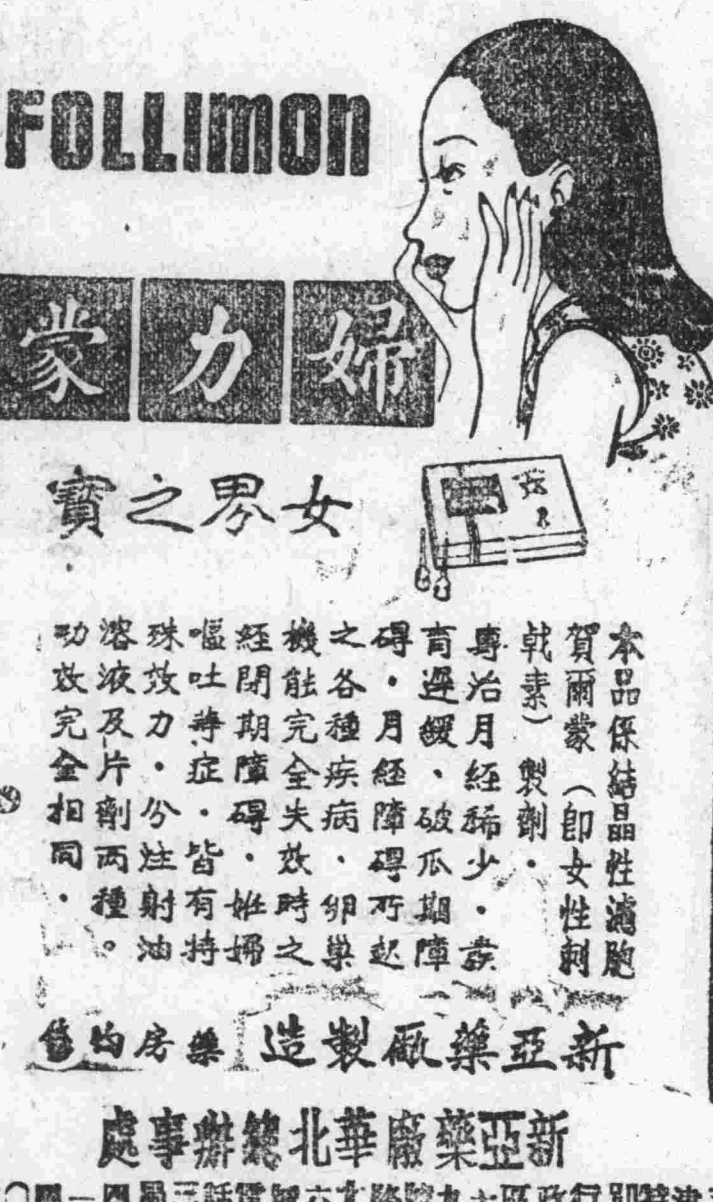 FOLLIMON
婦力蒙
女界之寶
本品係結晶性濾胞
賀爾蒙(卽女性刺
戟素)製劑.
專治月經稀少.發
育遲緩、破瓜期障
碍.月經障碍所起
之各種疾病.卵巢
機能完全失效時之
經閉期障碍.姙婦
嘔吐等症.皆有特
殊效力.分注射油
溶液及片劑兩種。
功效完全相同.
新亞藥廠製造
藥房均售
新亞藥廠華北總辦事處